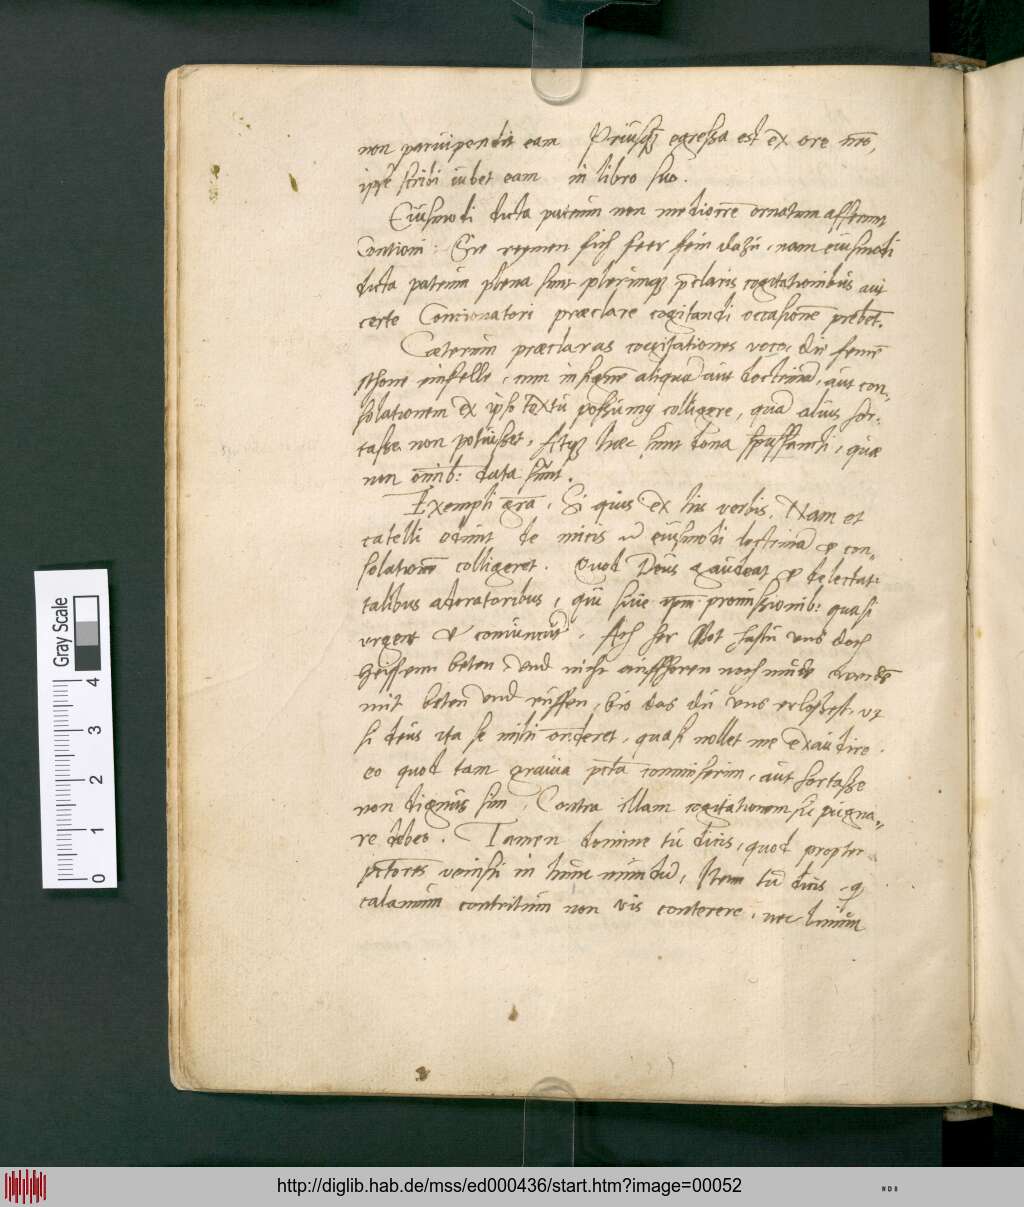 non paruipendit eam Priusq3 egressa est ex ore nro,
ipse scribi iubet eam in libro suo.
Eiusmodi dicta patrum non mediocre ornatum afferunt
Contioni: Sie reymen sich seer fein dazu, nam eiusmodi
dicta patrum plena sunt plerunq3 pclaris cogitationibus aut
certe Concionatori praeclare cogitandi occasione prebet.
Caeterum praeclaras cogitationes voco, die feine
schone einfelle, cum insigne aliqua aut doctrina, aut con„
solationem ex ipso textu possumus colligere, qua alius for:
tasse non potuisset, Atq3 haec sunt dona spussancti, quae
non omnib: data sunt.
Exempli gra, Si quis ex his verbis, Nam et
catelli edunt de micis &c eiusmodi doctrina & con„
solatione colligeret. Quod Deus gaudeat & delectat:
talibus adoratoribus, qui suis promissionib: quasi
vrgent & conuincut. Ach her Got hastu vns doch
heissenn beten, vnd nicht auffhoren noch mude werde
mit beten vnd ruffen, bis das du vns erlosest, vt
si deus ita se mihi onderet, quasi nollet me exaudire.
eo quod tam grauia pcta commiserim, aut fortasse
non dignus sim, Contra illam cogitationem sic pugna„
re debeo. Tamen domine tu dicis, quod propter
pctores venisti in hunc mundu, Item tu dicis q
calamum contritum non vis conterere, nec linum
Gray Scale
0 1 2 3 4
http://diglib.hab.de/mss/ed000436/start.htm?image=00052